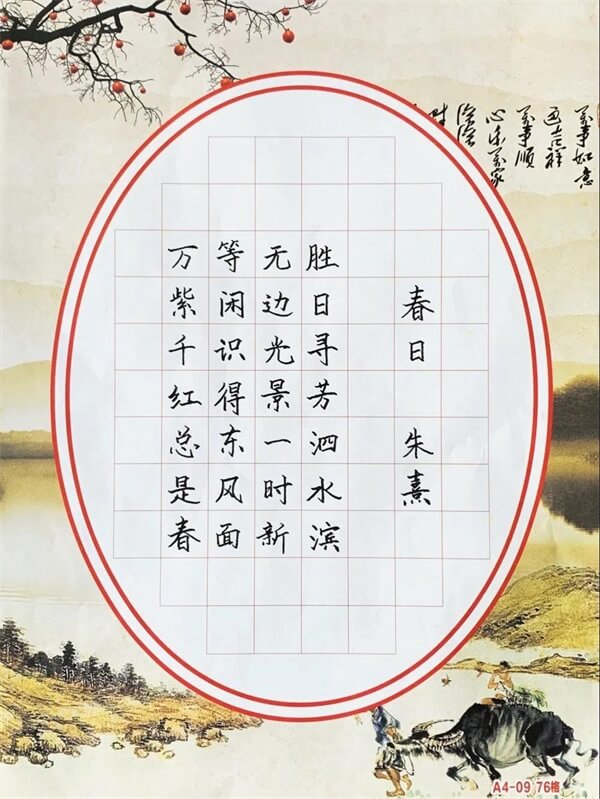 春日 朱熹
胜日寻芳泗水滨
无边光景一时新
等闲识得东风面
万紫千红总是春
万事如意
万事顺
心乐万家
A4-09 76格